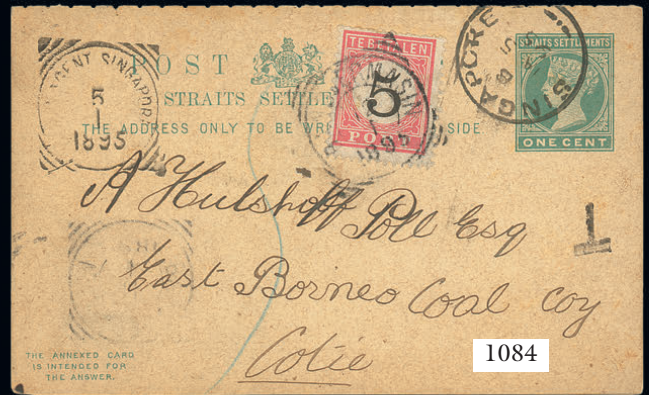 POST
STRAITS SETTLE
THE ADDRESS ONLY TO BE WRI SIDE
AGENT SINGAPORE
5
1
1895
TE BETALEN
5
PO
SINGAPORE
STRAITS SETTLEMENTS
ONE CENT
A Hulshoff Poll Esq
T
East Borneo Coal Coy
Cotie
THE ANNEXED CARD
IS INTENDED FOR
THE ANSWER.
1084